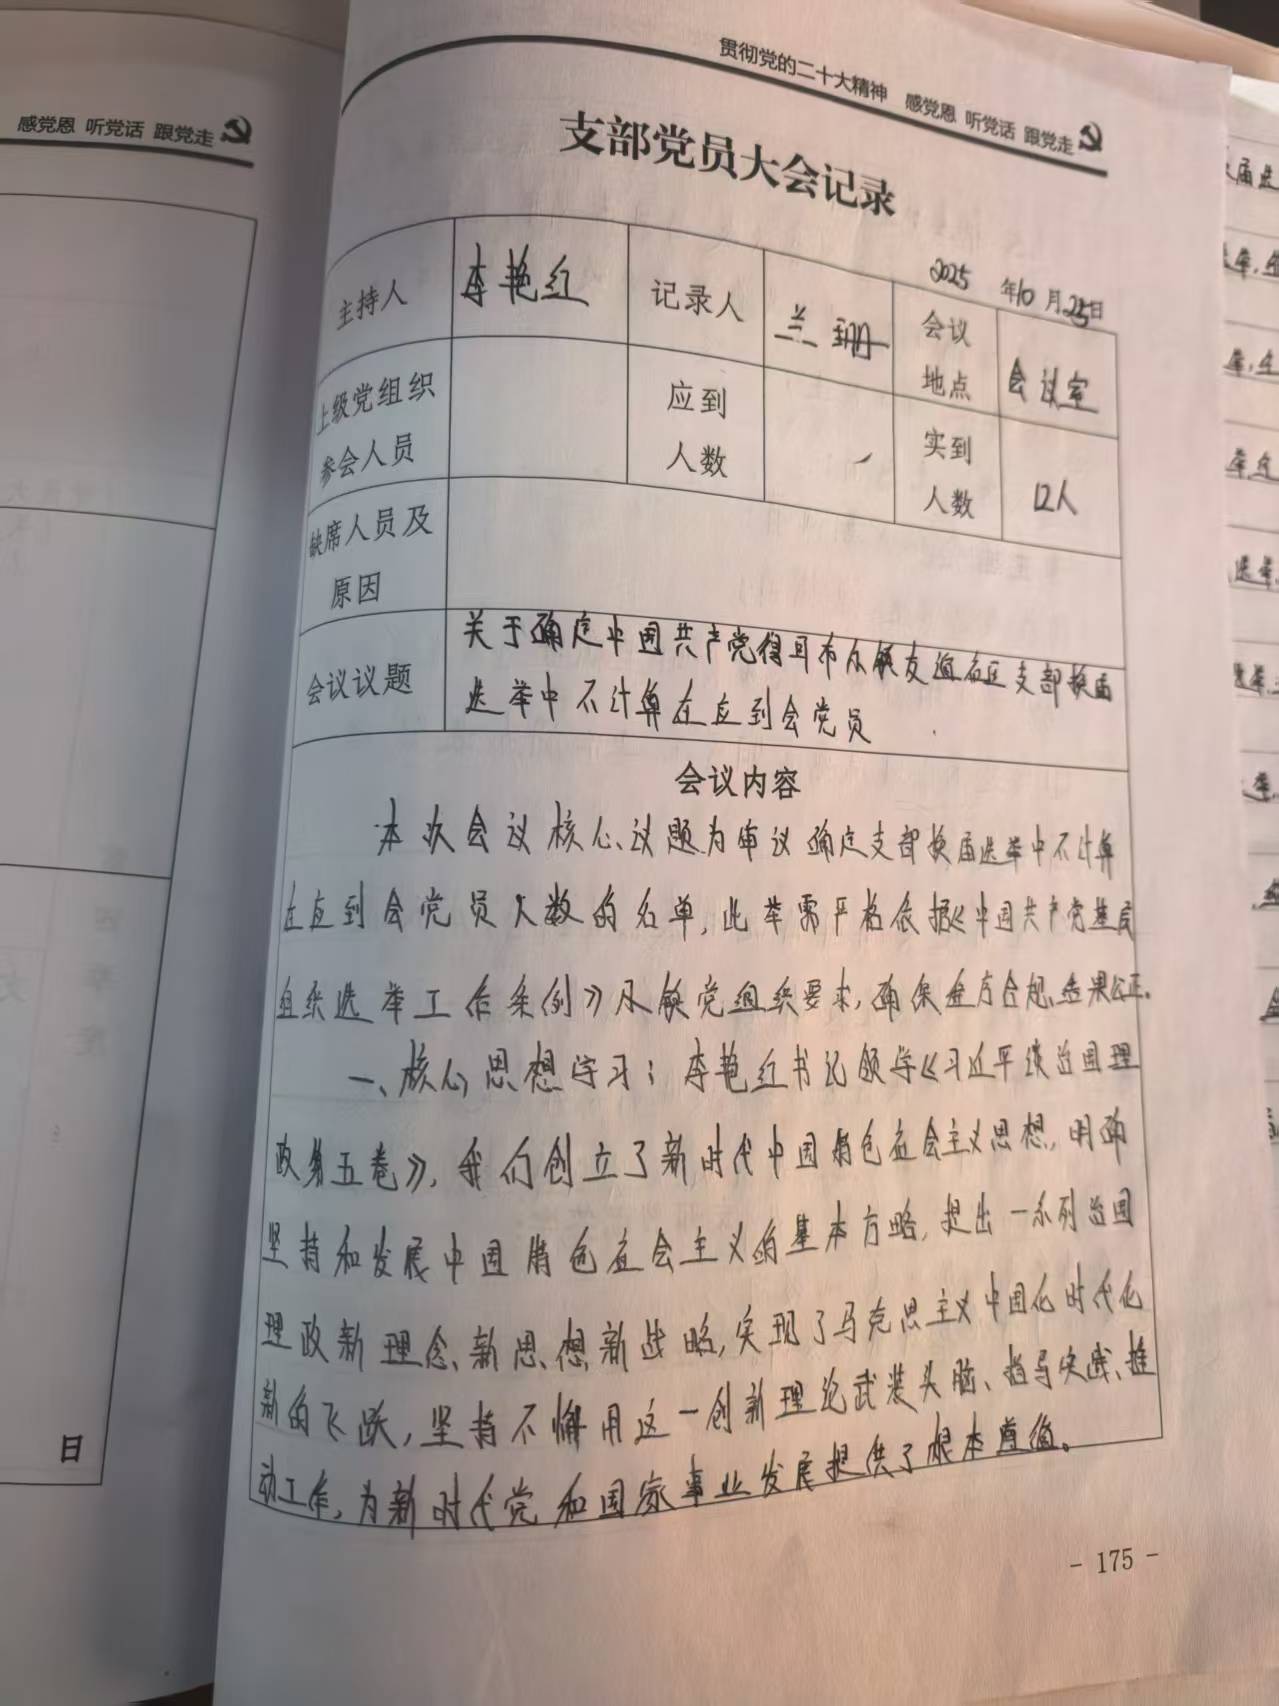 感党恩 听党话 跟党走
日
贯彻党的二十大精神 感党恩 听党话 跟党走
支部党员大会记录
2025年10月25日
主持人 李艳红 记录人 兰珊 会议地点 会议室
上级党组织参会人员 应到人数 实到人数 12人
缺席人员及原因
会议议题 关于确定中国共产党 支部换届
选举中不计算在应到会党员
会议内容
本次会议核心议题为审议确定支部换届选举中不计算
在应到会党员人数的名单,此举需严格依据《中国共产党基层
组织选举工作条例》及镇党组织要求,确保程序合规、结果公正。
一、核心思想学习:李艳红书记领学《习近平谈治国理
政第五卷》,我们创立了新时代中国特色社会主义思想,明确
坚持和发展中国特色社会主义的基本方略,提出一系列治国
理政新理念、新思想、新战略,实现了马克思主义中国化时代化
新的飞跃,坚持不懈用这一创新理论武装头脑、指导实践、推
动工作,为新时代党和国家事业发展提供了根本遵循。
- 175 -